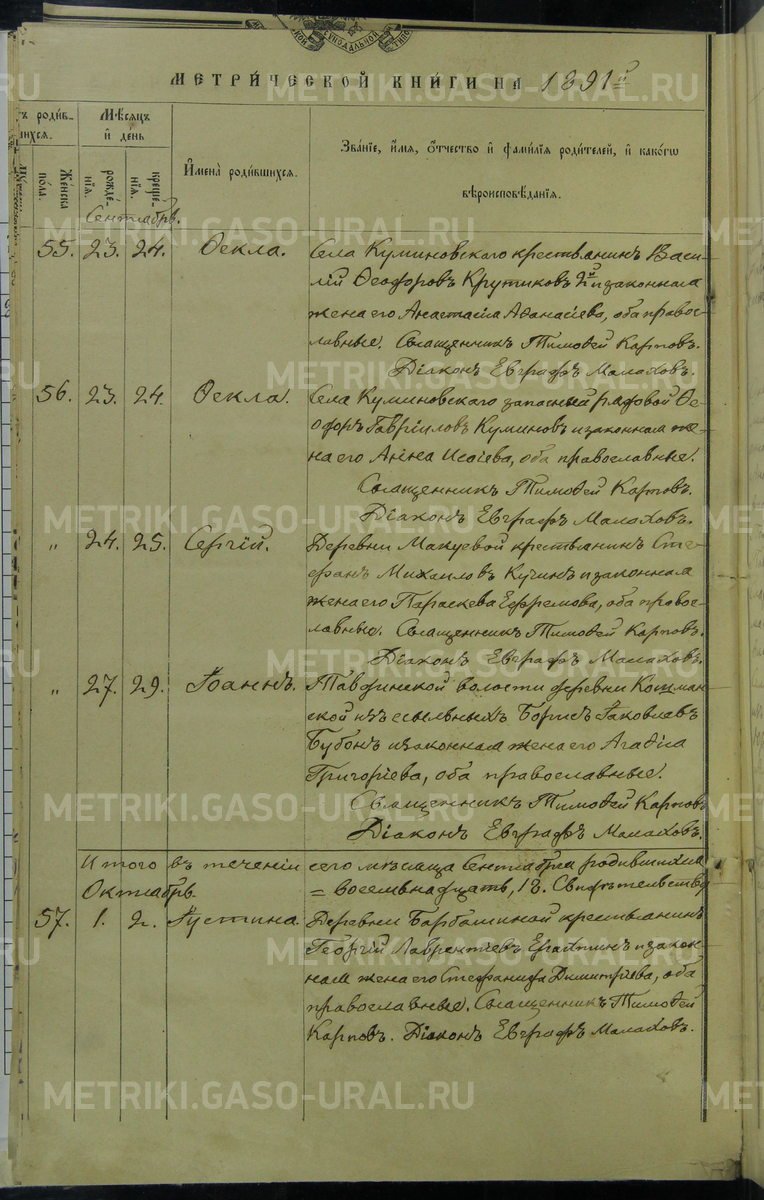 СѴНОДАЛЬНОЙ ТИПО
МЕТРИ́ЧЕСКОЙ КНИ́ГИ НА 1891й
ъ роди́в-
шихся.
Мѣ́сяцъ
и҆ де́нь
Же́нска по́ла.
рожде́-нїя.
креще́-нїя.
И҆мена̀ роди́вшихся.
Зва́нїе, и҆́мя, ѻ҆́тчество и҆ фами́лїя роди́телей, и҆ како́гѡ
вѣроисповѣ́данїя.
Сентябрь.
55. 23. 24. Ѳекла. Села Куминовскаго крестьянинъ Васи-
лій Ѳеодоровъ Крутиковъ 2й и законная
жена его Анастасія Аѳанасіева, оба правос-
лавные. Священникъ Тимоѳей Карповъ.
Діаконъ Евграфъ Малаховъ.
56. 23. 24. Ѳекла. Села Куминовскаго запасный рядовой Ѳе-
одоръ Гавріиловъ Куминовъ и законная же-
на его Анна Исаіева, оба православные.
Священникъ Тимоѳей Карповъ.
Діаконъ Евграфъ Малаховъ.
" 24. 25. Сергій. Деревни Макуевой крестьянинъ Сте-
фанъ Михаиловъ Кучинъ и законная
жена его Параскева Ефремова, оба правос-
лавные. Священникъ Тимоѳей Карповъ.
Діаконъ Евграфъ Малаховъ.
" 27. 29. Іоаннъ. Тавдинской волости деревни Кошман-
ской изъ ссыльныхъ Борисъ Іаковлевъ
Бубонъ и законная жена его Агаѳіа
Григоріева, оба православные.
Священникъ Тимоѳей Карповъ
Діаконъ Евграфъ Малаховъ.
Итого въ теченіи сего мѣсяца Сентября родившихся
= восемьнадцать, 18. Свидѣтельству
Октябрь.
57. 1. 2. Іустина. Деревни Барбашиной крестьянинъ
Георгій Лаврентіевъ и закон-
ная жена его Стефанида Димитріева, оба
православные. Священникъ Тимоѳей
Карповъ. Діаконъ Евграфъ Малаховъ.
METRIKI.GASO-URAL.RU